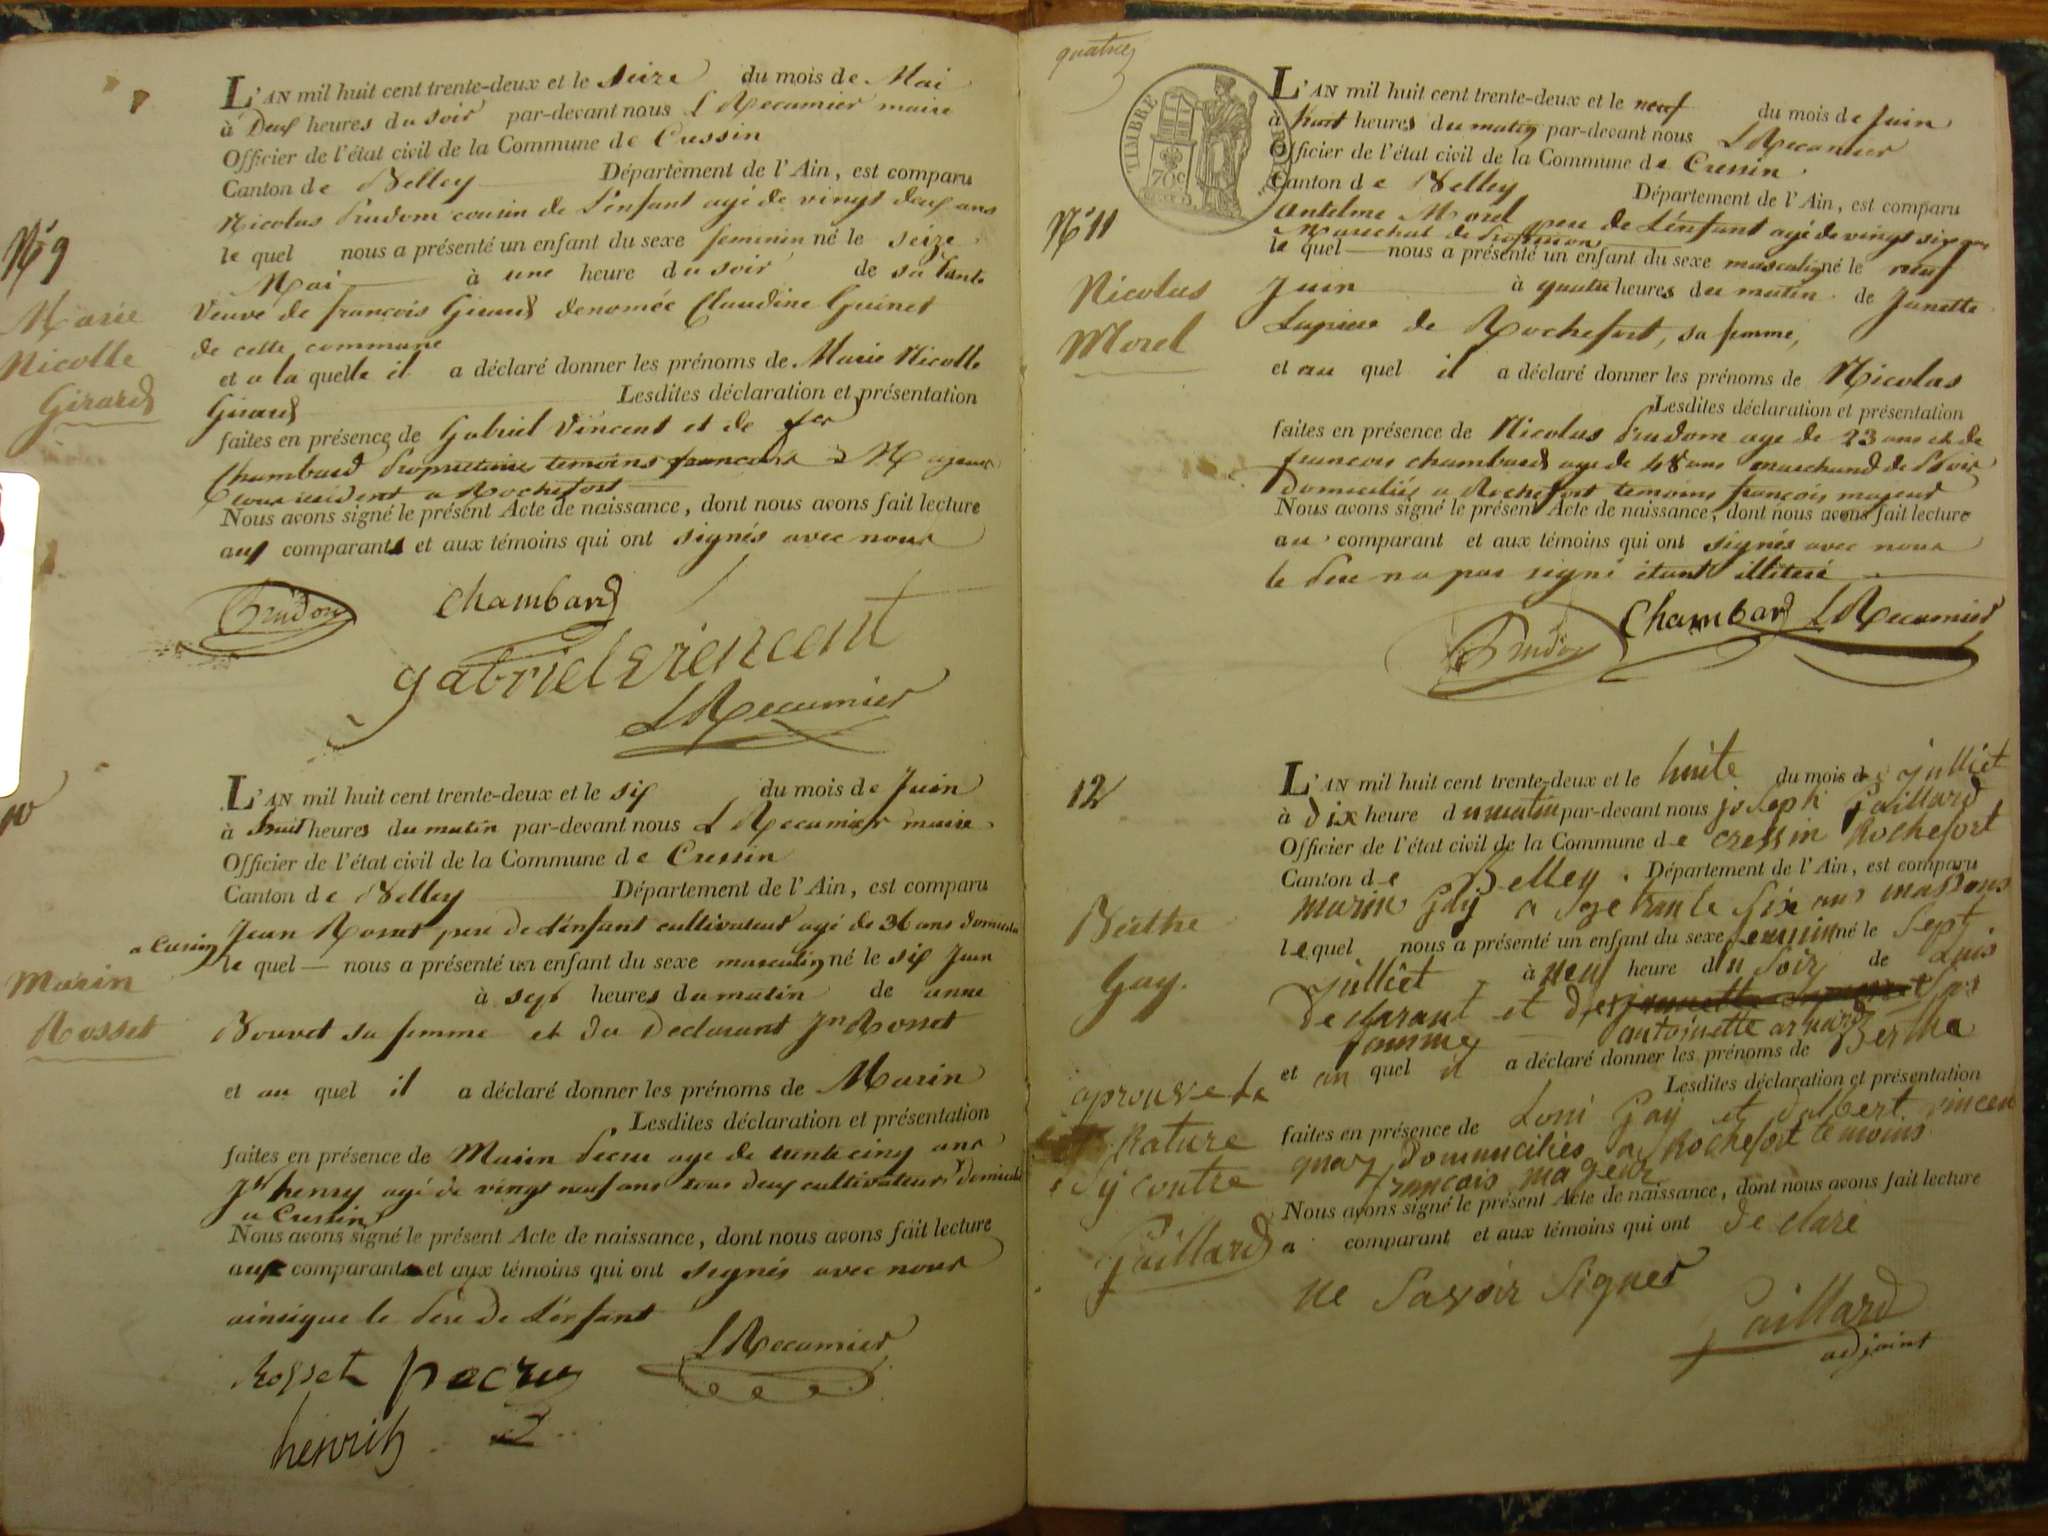 L'AN mil huit cent trente-deux et le seize du mois de Mai
à Deux heures du soir par-devant nous L Recamier maire
Officier de l'état civil de la Commune de Cressin
Canton de Belley Département de l'Ain, est comparu
Nicolas Prudom cousin de L'enfant agé de vingt deux ans
le quel nous a présenté un enfant du sexe feminin né le seize
Mai à une heure du soir de sa tante
N° 9
Marie
Nicolle
Girard
Veuve de françois Girard denomée Claudine Guinet
de cette commune
et a la quelle il a déclaré donner les prénoms de Marie Nicolle
Girard Lesdites déclaration et présentation
faites en présence de Gabriel Vincent et de
Chambard Proprietaires temoins francais Majeurs
tous resident a Rochefort
Nous avons signé le présent Acte de naissance, dont nous avons fait lecture
aux comparants et aux témoins qui ont signés avec nous
Prudom Chambard
gabriel viencent
L Recamier
L'AN mil huit cent trente-deux et le six du mois de Juin
à huit heures du matin par-devant nous L Recamier maire
Officier de l'état civil de la Commune de Cressin
Canton de Belley Département de l'Ain, est comparu
Jean Rosset pere de L'enfant cultivateur agé de 36 ans domicilié
a Cressin
le quel nous a présenté un enfant du sexe masculin né le six Juin
à sept heures du matin de anne
10
Marin
Rosset
Bouvet sa femme et du Declarant Jn Rosset
et au quel il a déclaré donner les prénoms de Marin
Lesdites déclaration et présentation
faites en présence de Marin Pecru age de trente cinq ans
henry agé de vingt neuf ans tous deux cultivateurs domicilié
a Cressin
Nous avons signé le présent Acte de naissance, dont nous avons fait lecture
aux comparants et aux témoins qui ont signés avec nous
ainsi que le Père de L'enfant
Rosset pecru L Recamier
henrih
quatre
TIMBRE ROYAL
70c
L'AN mil huit cent trente-deux et le neuf du mois de Juin
à huit heures du matin par-devant nous L Recamier
Officier de l'état civil de la Commune de Cressin
Canton de Belley Département de l'Ain, est comparu
Antelme Morel pere de L'enfant agé de vingt six ans
Marechal de Profession
le quel nous a présenté un enfant du sexe masculin né le neuf
Juin à quatre heures du matin de Janette
N° 11
Nicolas
Morel
Lapierre de Rochefort, sa femme,
et au quel il a déclaré donner les prénoms de Nicolas
Lesdites déclaration et présentation
faites en présence de Nicolas Prudom age de 23 ans et de
francois chambard age de 48 ans marchand de
Domiciliés a Rochefort temoins françois majeurs
Nous avons signé le présent Acte de naissance, dont nous avons fait lecture
au comparant et aux témoins qui ont signés avec nous
le Pere n a pas signé étant illiteré
Prudom Chambard L Recamier
L'AN mil huit cent trente-deux et le huite du mois de julliet
à dix heure du matin par-devant nous joseph Gaillard
Officier de l'état civil de la Commune de cressin Rochefort
Canton de Belley. Département de l'Ain, est comparu
marin Gay a Sge trante six ans massons
lequel nous a présenté un enfant du sexe feminin né le Sept
julliet à neuf heure du Soir de Luis
12
Berthe
Gay.
declarant et de Sas
famme antoinette
et au quel il a déclaré donner les prénoms de Bertha
Lesdites déclaration et présentation
faites en présence de Loui Gay et dalbert vincen
domnuciliés a Rochefort temoins
francois mageur
Nous avons signé le présent Acte de naissance, dont nous avons fait lecture
a comparant et aux témoins qui ont de clare
ne Savoir Signer
aprouve la
Rature
sy contre
Gaillard
Gaillard
adjoint